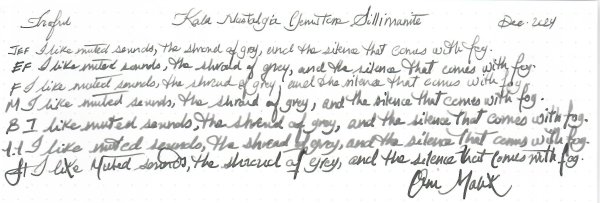 Kala Nostalgia Gemstone Sillimanite Dec. 2024
JEF I like muted sounds, the shroud of grey, and the silence that comes with fog.
EF I like muted sounds, the shroud of grey, and the silence that comes with fog.
F I like muted sounds, the shroud of grey, and the silence that comes with fog.
M I like muted sounds, the shroud of grey, and the silence that comes with fog.
B I like muted sounds, the shroud of grey, and the silence that comes with fog.
1.1 I like muted sounds, the shroud of grey, and the silence that comes with fog.
I like Muted sounds, the shroud of grey, and the silence that comes with fog.
Om Malik